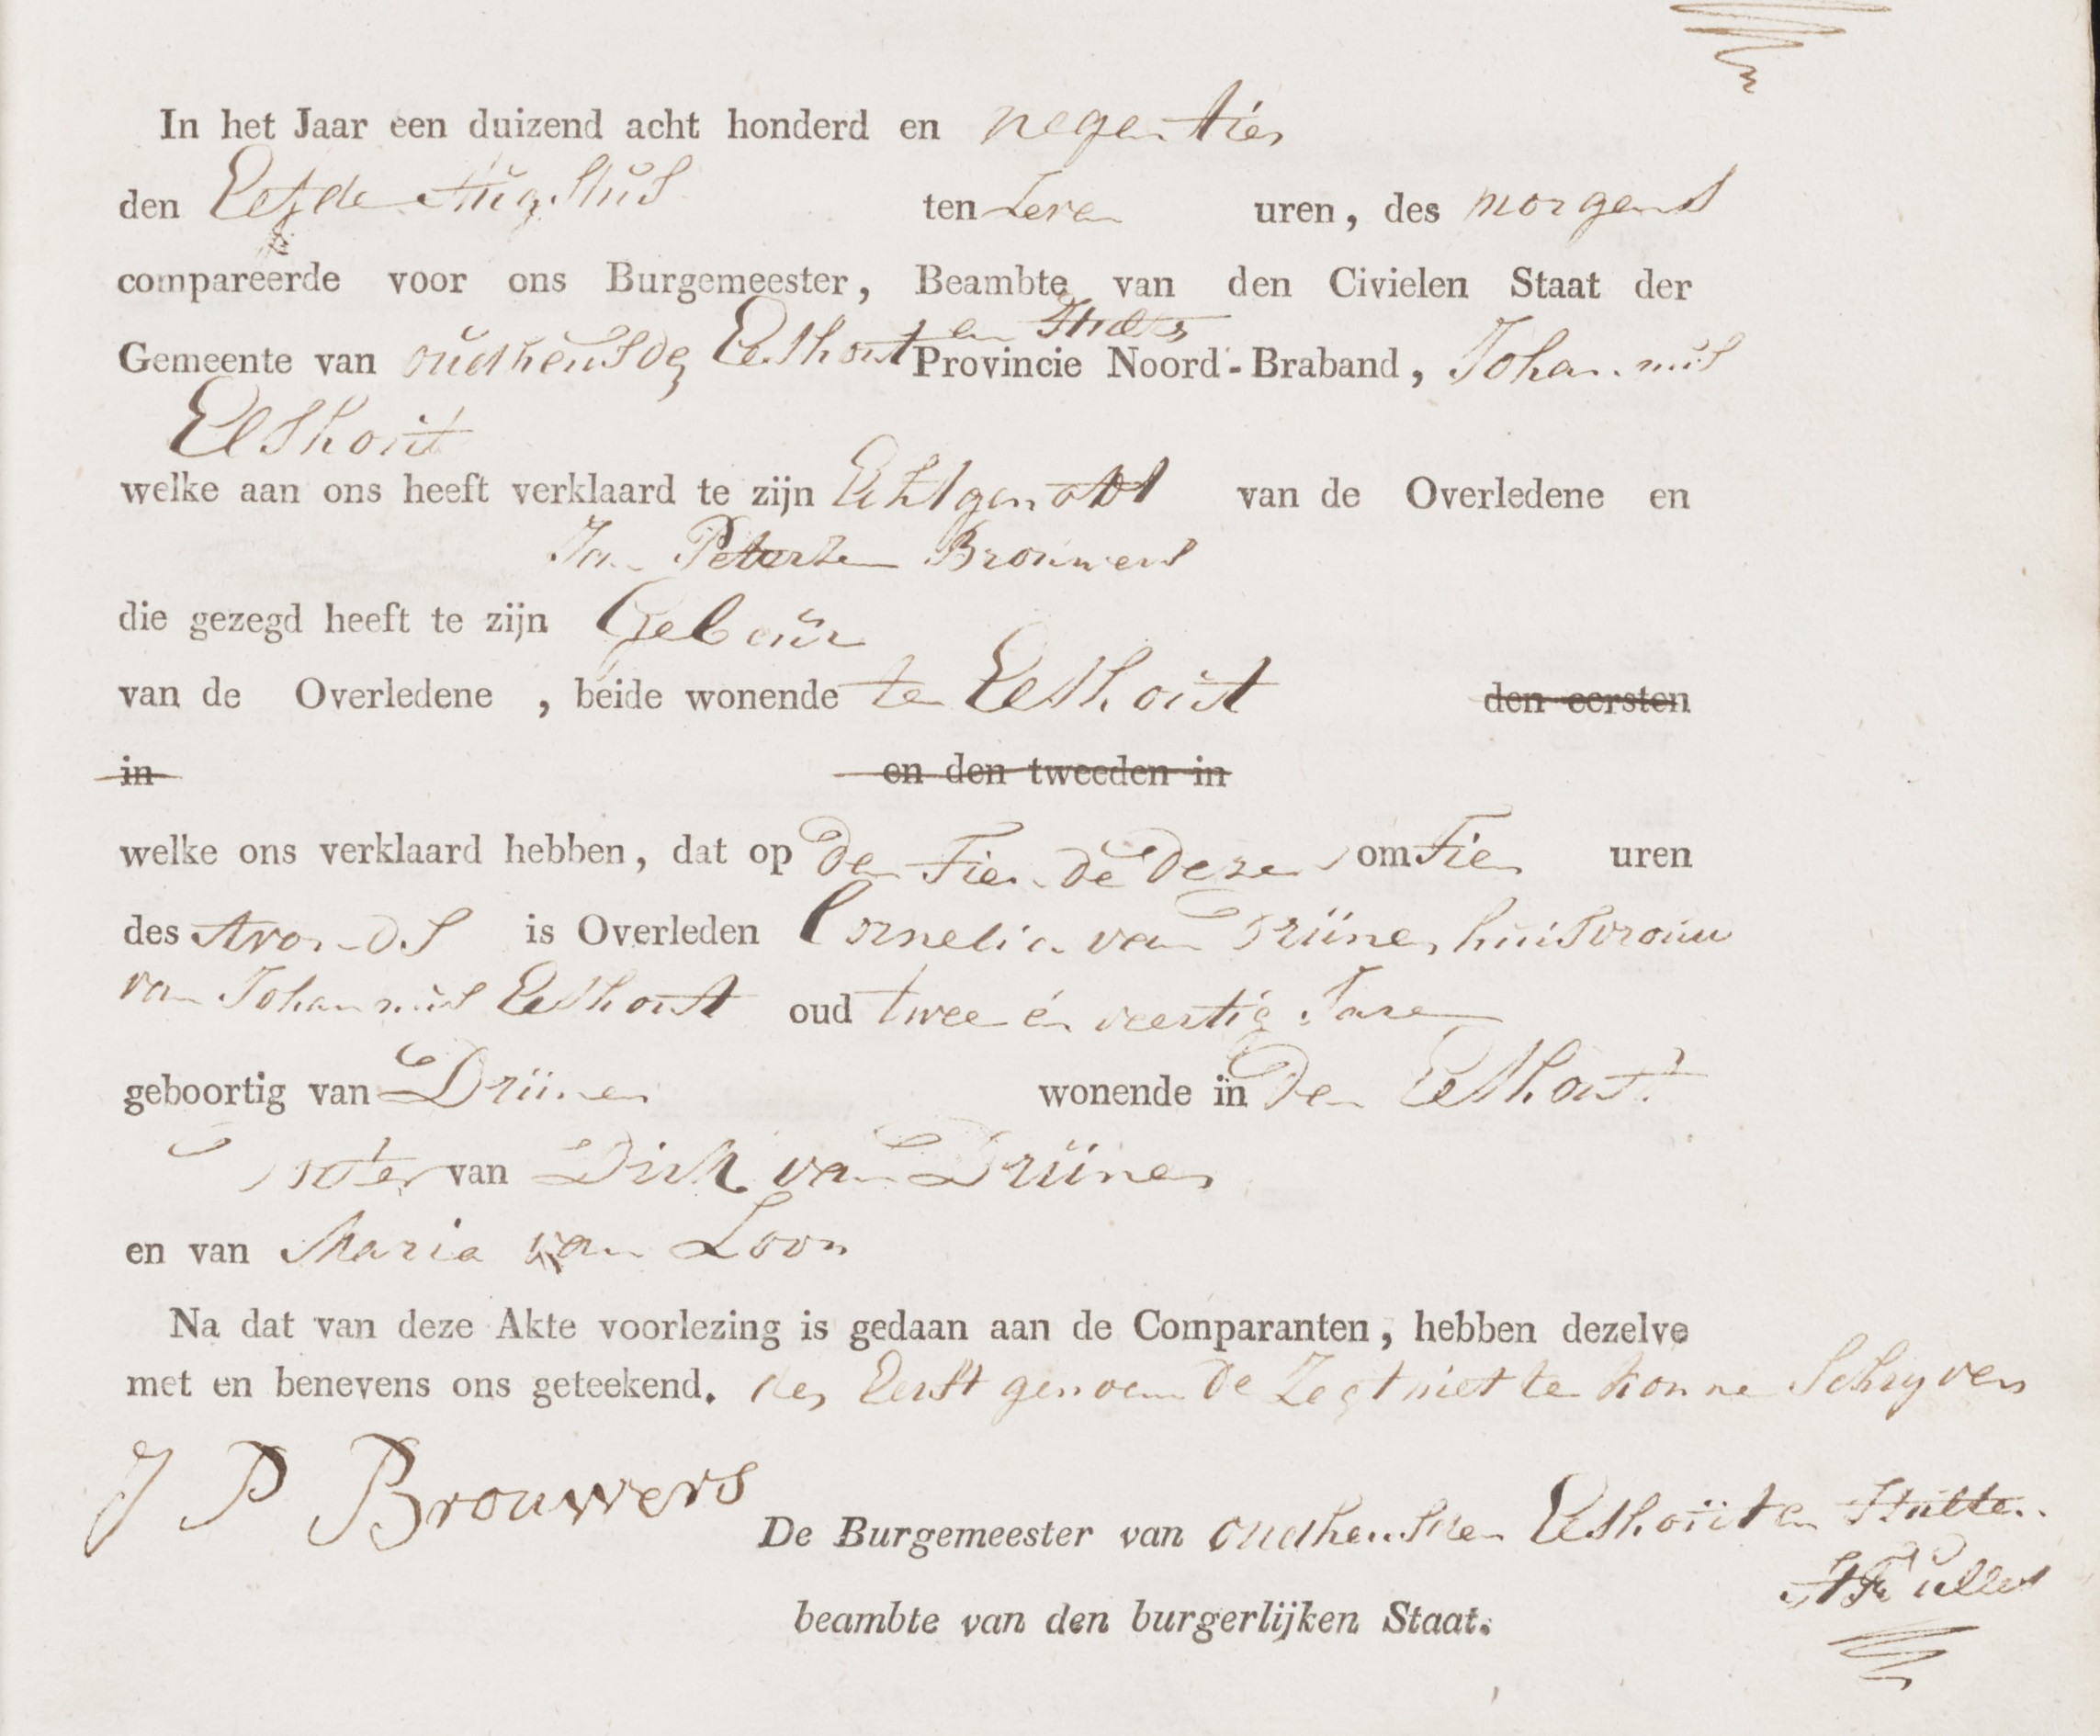 In het Jaar een duizend acht honderd en negentien
den Elfde Augustus ten Zeven uren, des morgens
compareerde voor ons Burgemeester, Beambte van den Civielen Staat der
en Hulten
Gemeente van oudheusden Elshout Provincie Noord-Braband, Johannis
Elshout
welke aan ons heeft verklaard te zijn Echtgenoot van de Overledene en
Jan Peterse Brouwers
die gezegd heeft te zijn Gebuur
van de Overledene , beide wonende te Elshout den eersten
in en den tweeden in
welke ons verklaard hebben, dat op Den Tiende Dezer om Tien uren
des Avonds is Overleden Cornelia van Drünen huisvrouw
van Johannis Elshout oud twee en veertig Jare
geboortig van Drünen wonende in Den Elshout
Dogter van Dirk van Drünen
en van Maria van Loon
Na dat van deze Akte voorlezing is gedaan aan de Comparanten, hebben dezelve
met en benevens ons geteekend. den Eerst genoemde Zegt niet te konne Schryven
J P Brouwers
De Burgemeester van oudheusden Elshout en Hulten
beambte van den burgerlijken Staat.